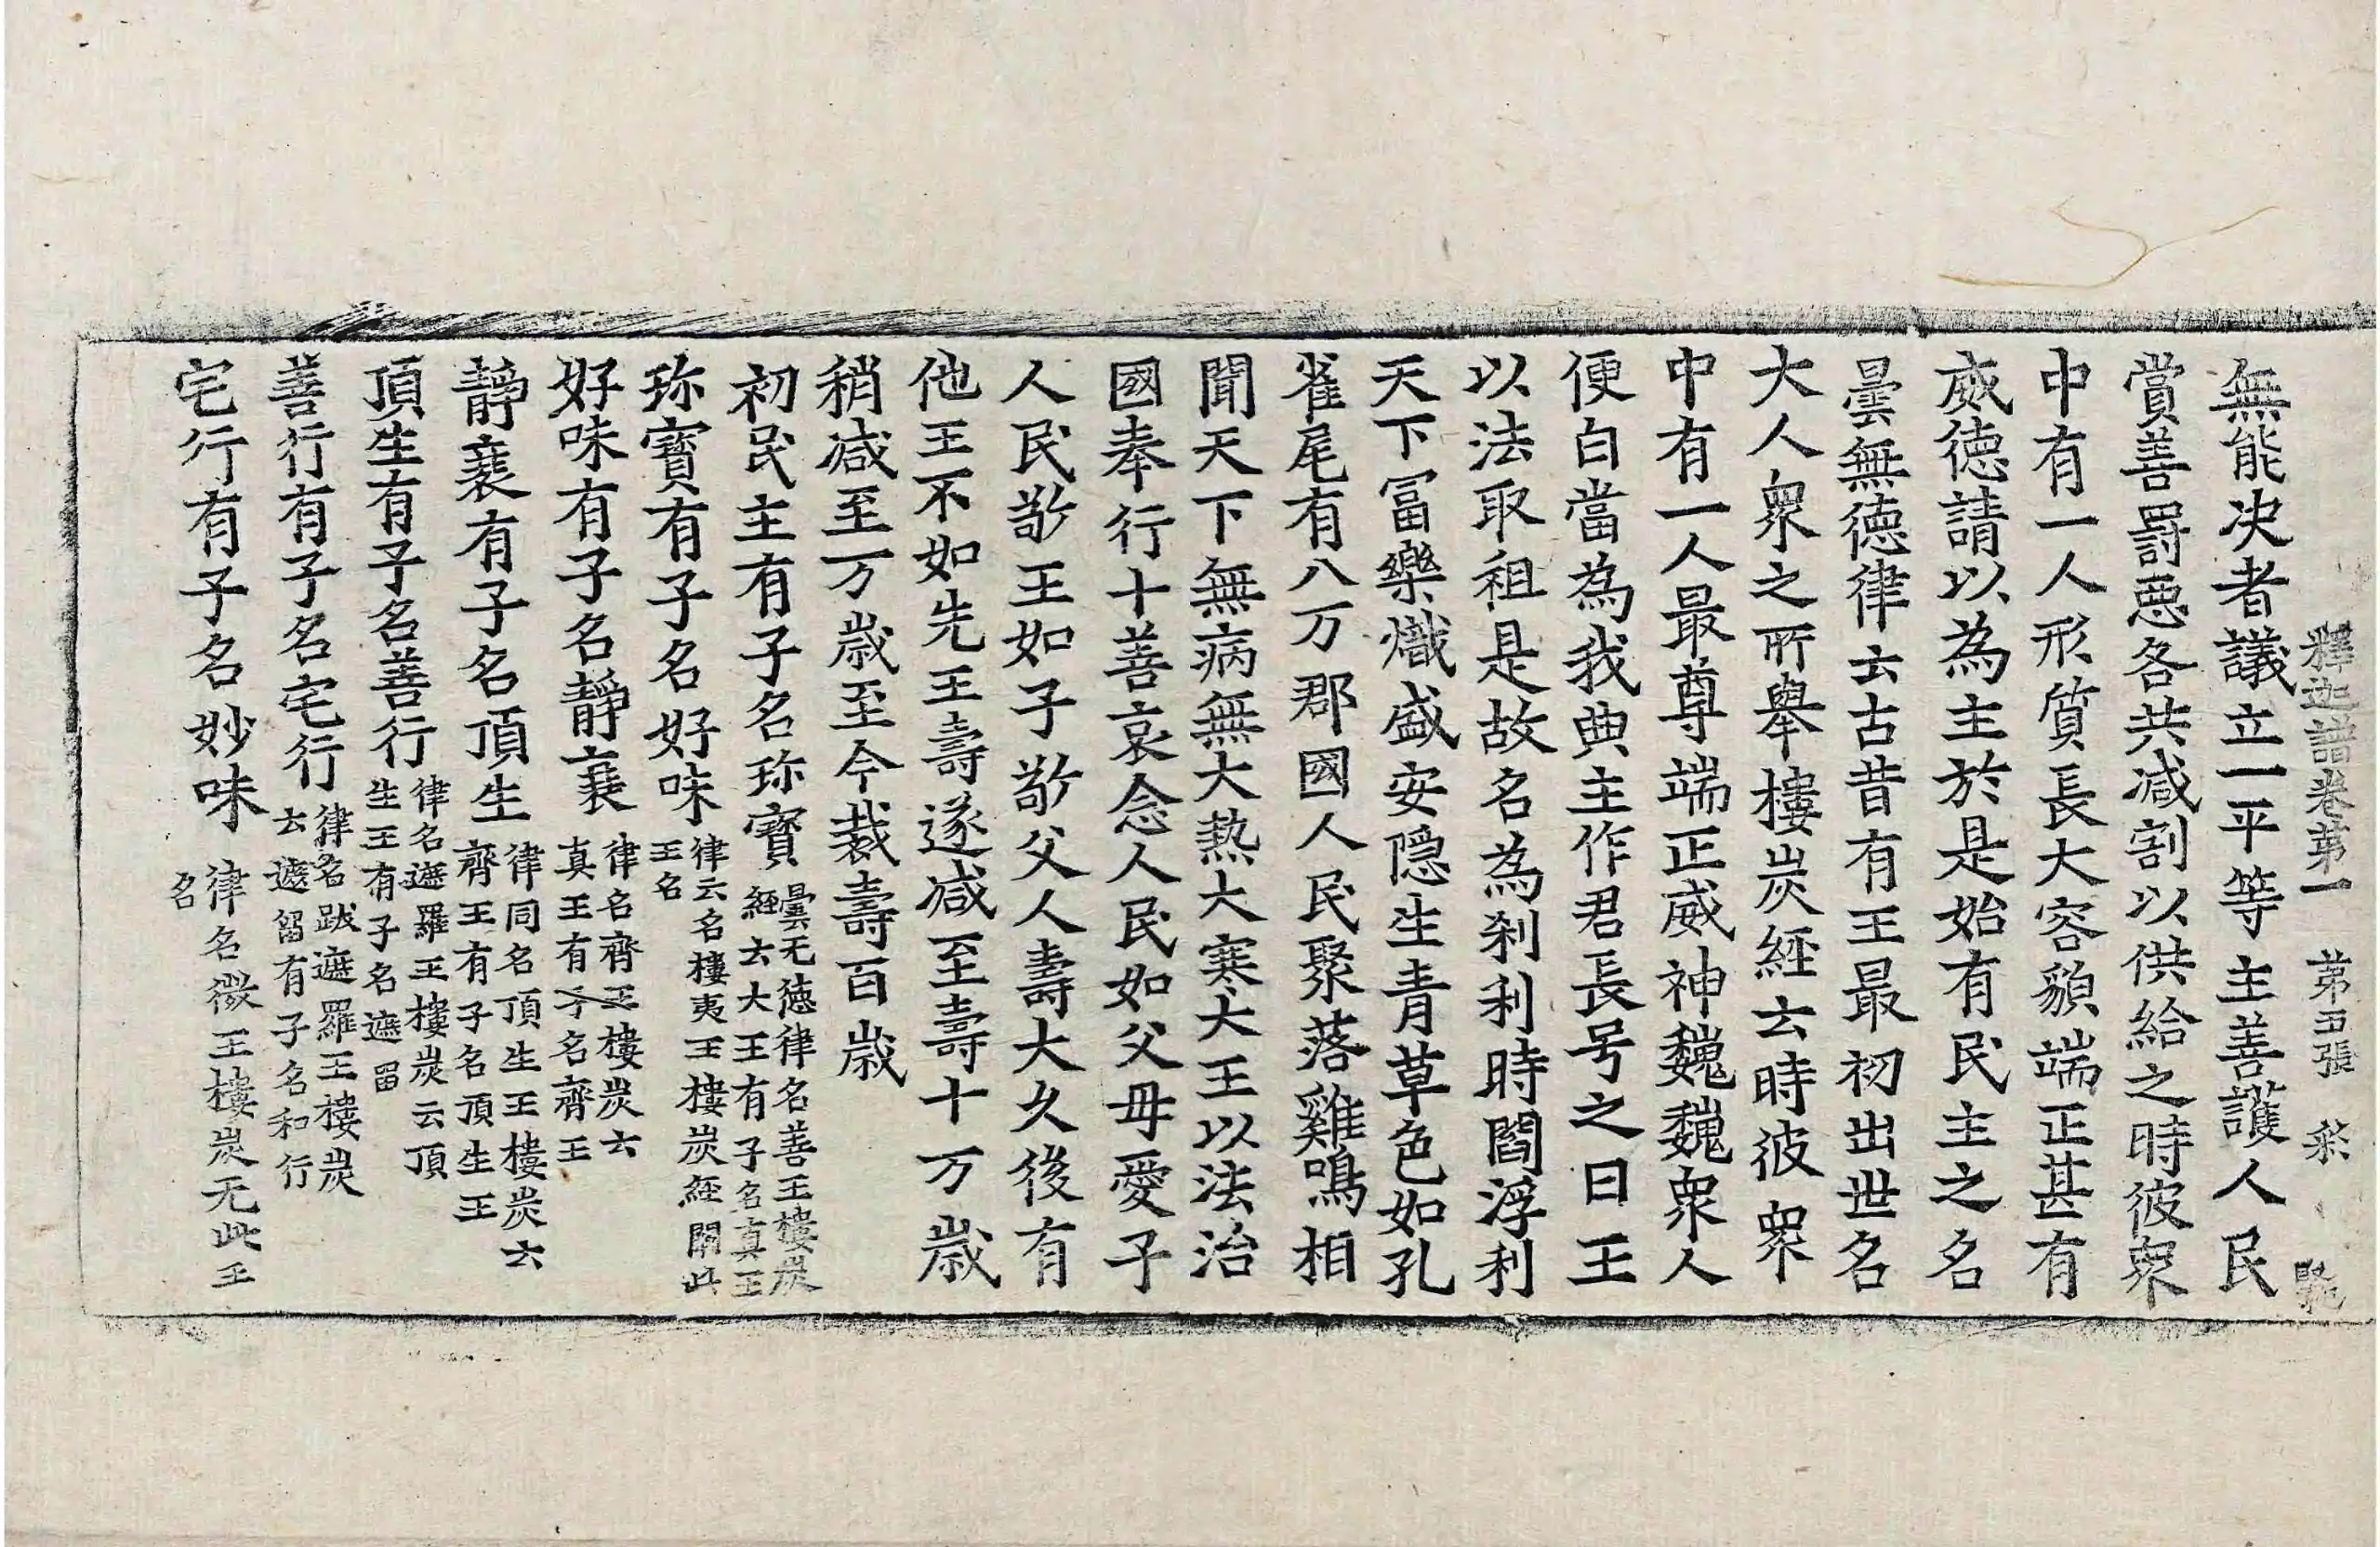 釋迦譜卷第一 第五張 䒹
無能决者議立一平等主善護人民
賞善罰惡各共减割以供給之時彼衆
中有一人形質長大容貌端正甚有
威德請以為主於是始有民主之名
曇無德律云古昔有王最初出世名
大人衆之所舉樓炭經云時彼衆
中有一人最尊端正威神巍巍衆人
便白當為我典主作君長号之曰王
以法取租是故名為刹利時閻浮利
天下冨樂熾盛安隱生青草色如孔
雀尾有八万郡國人民聚落雞鳴相
聞天下無病無大熱大寒大王以法治
國奉行十善哀念人民如父母愛子
人民敬王如子敬父人壽大久後有
他王不如先王壽遂减至壽十万歲
稍减至万歲至今裁壽百歲
初民主有子名珎寶曇无德律名善王樓炭經云大王有子名真王
珎寶有子名好味律云名樓夷王樓炭經闕此王名
好味有子名靜㐮律名齊王樓炭云真王有子名齊王
靜㐮有子名頂生律同名頂生王樓炭云齊王有子名頂生王
頂生有子名善行律名遮羅王樓炭云頂生王有子名遮留
善行有子名宅行律名跋遮羅王樓炭云遮留有子名和行
宅行有子名妙味律名微王樓炭无此王名